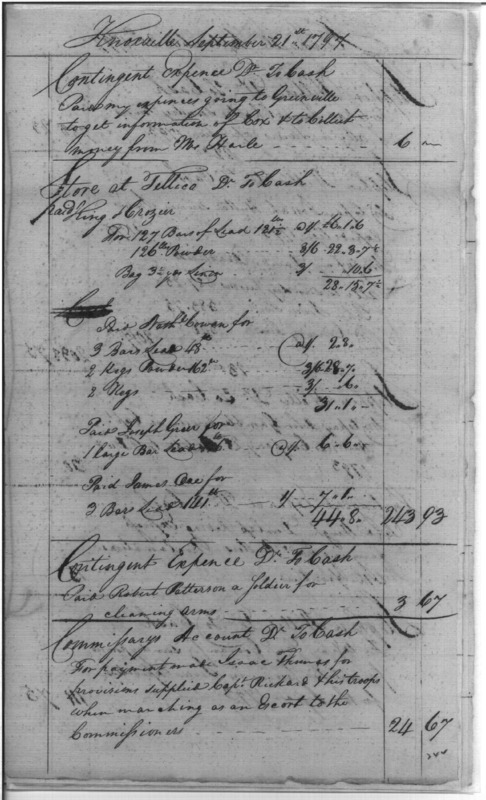 Knoxville September 21st 1797
Contingent Expence Dr To Cash
Paid my expences going to Greenville
to get information of Cox & to Collect
money from Mr Harle 6 "
Store at Tellico Dr To Cash
paid King & Crozier
For 127 Bars of Lead
126lb Powder 3/6 22.3.7½
Bag 3/ 10.6
28.15.7½
Paid Nathl Cowan for
3 Bars Lead 43lb @ 1/. 2.3.
2 Kegs Powder 162lb 3/6 28.7.
2 Kegs 3/ .6.
31.1.
Paid Joseph Greer for
1 large Bar Lead @ 1/ 6.6.
Paid James Dae for
3 Bars Lead 141lb 1/ 7.1.
44.8. 243 93
Contingent Expence Dr To Cash
Paid Robert Patterson a Soldier for
cleaning arms 3 67
Commissary's Account Dr To Cash
For payment made Isaac Thomas for
provisions supplied Capt Rickard & his troops
when marching as an Escort to the
Commissioners 24 67